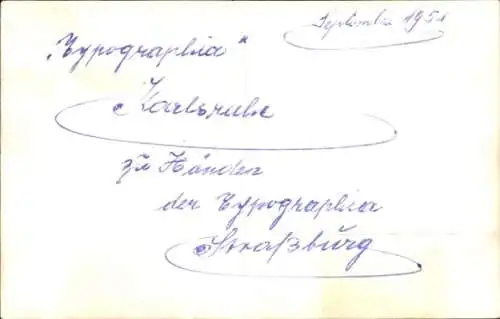 September 1951
„Typographia“
Karlsruhe
zu Händen
der Typographia
Straßburg